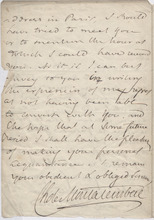 address in Paris, I would
have tried to meet you
or to mention the hour at
which I could have
you. As it is I can but
to you in writing
the expression of my regret
at not having been able
to converse with you, and
the hope that at some future
period I shall have the pleasure
of making your personal
acquaintance. I remain
your obedient & obliged